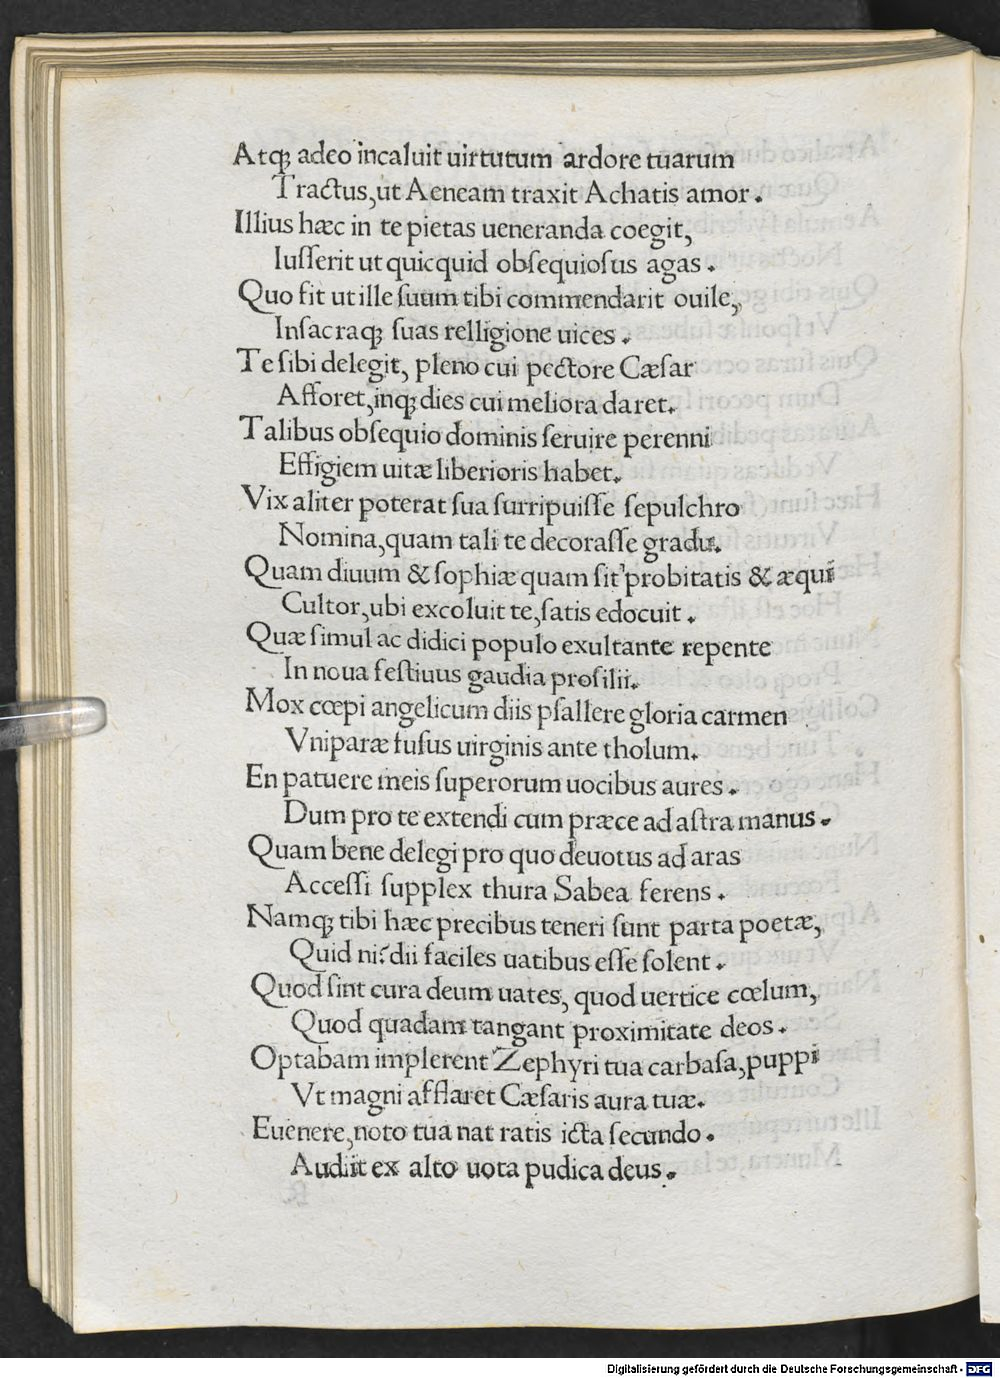 Atq; adeo incaluit uirtutum ardore tuarum
Tractus, ut Aeneam traxit Achatis amor.
Illius hæc in te pietas ueneranda coegit,
Iusserit ut quicquid obsequiosus agas.
Quo fit ut ille suum tibi commendarit ouile,
Insacraq; suas relligione uices.
Te sibi delegit, pleno cui pectore Cæsar
Afforet, inq; dies cui meliora daret.
Talibus obsequio dominis seruire perenni
Effigiem uitæ liberioris habet.
Vix aliter poterat sua surripuisse sepulchro
Nomina, quam tali te decorasse gradu.
Quam diuum & sophiæ quam sit' probitatis & æqui
Cultor, ubi excoluit te, satis edocuit.
Quæ simul ac didici populo exultante repente
In noua festiuus gaudia prosilii.
Mox cœpi angelicum diis psallere gloria carmen
Vniparæ fusus uirginis ante tholum.
En patuere meis superorum uocibus aures.
Dum pro te extendi cum præce ad astra manus.
Quam bene delegi pro quo deuotus ad aras
Accessi supplex thura Sabea ferens.
Namq; tibi hæc precibus teneri sunt parta poetæ,
Quid ni? dii faciles uatibus esse solent.
Quod sint cura deum uates, quod uertice cœlum,
Quod quadam tangant proximitate deos.
Optabam implerent Zephyri tua carbasa, puppi
Vt magni afflaret Cæsaris aura tuæ.
Euenere, noto tua nat ratis icta secundo.
Audiit ex alto uota pudica deus.
Digitalisierung gefördert durch die Deutsche Forschungsgemeinschaft - DFG